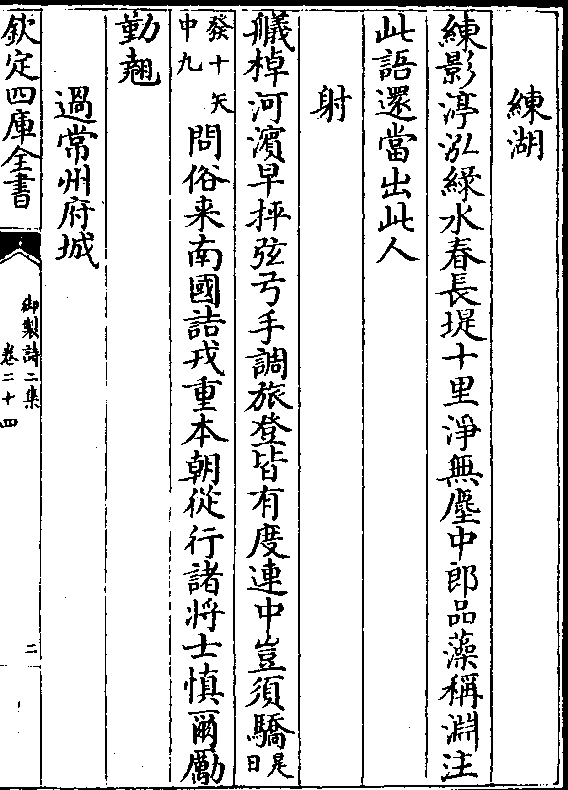 練湖
練影渟泓綠水春長堤十里淨無塵中郎品藻稱淵注
此語還當出此人
射
艤棹河濱早抨弦弓手調旅登皆有度連中豈須驕是日
發十矢中九問俗来南國詰戎重本朝從行諸將士慎爾勵
勤翹
過常州府城
欽定四庫全書
御製詩二集
卷二十四
二